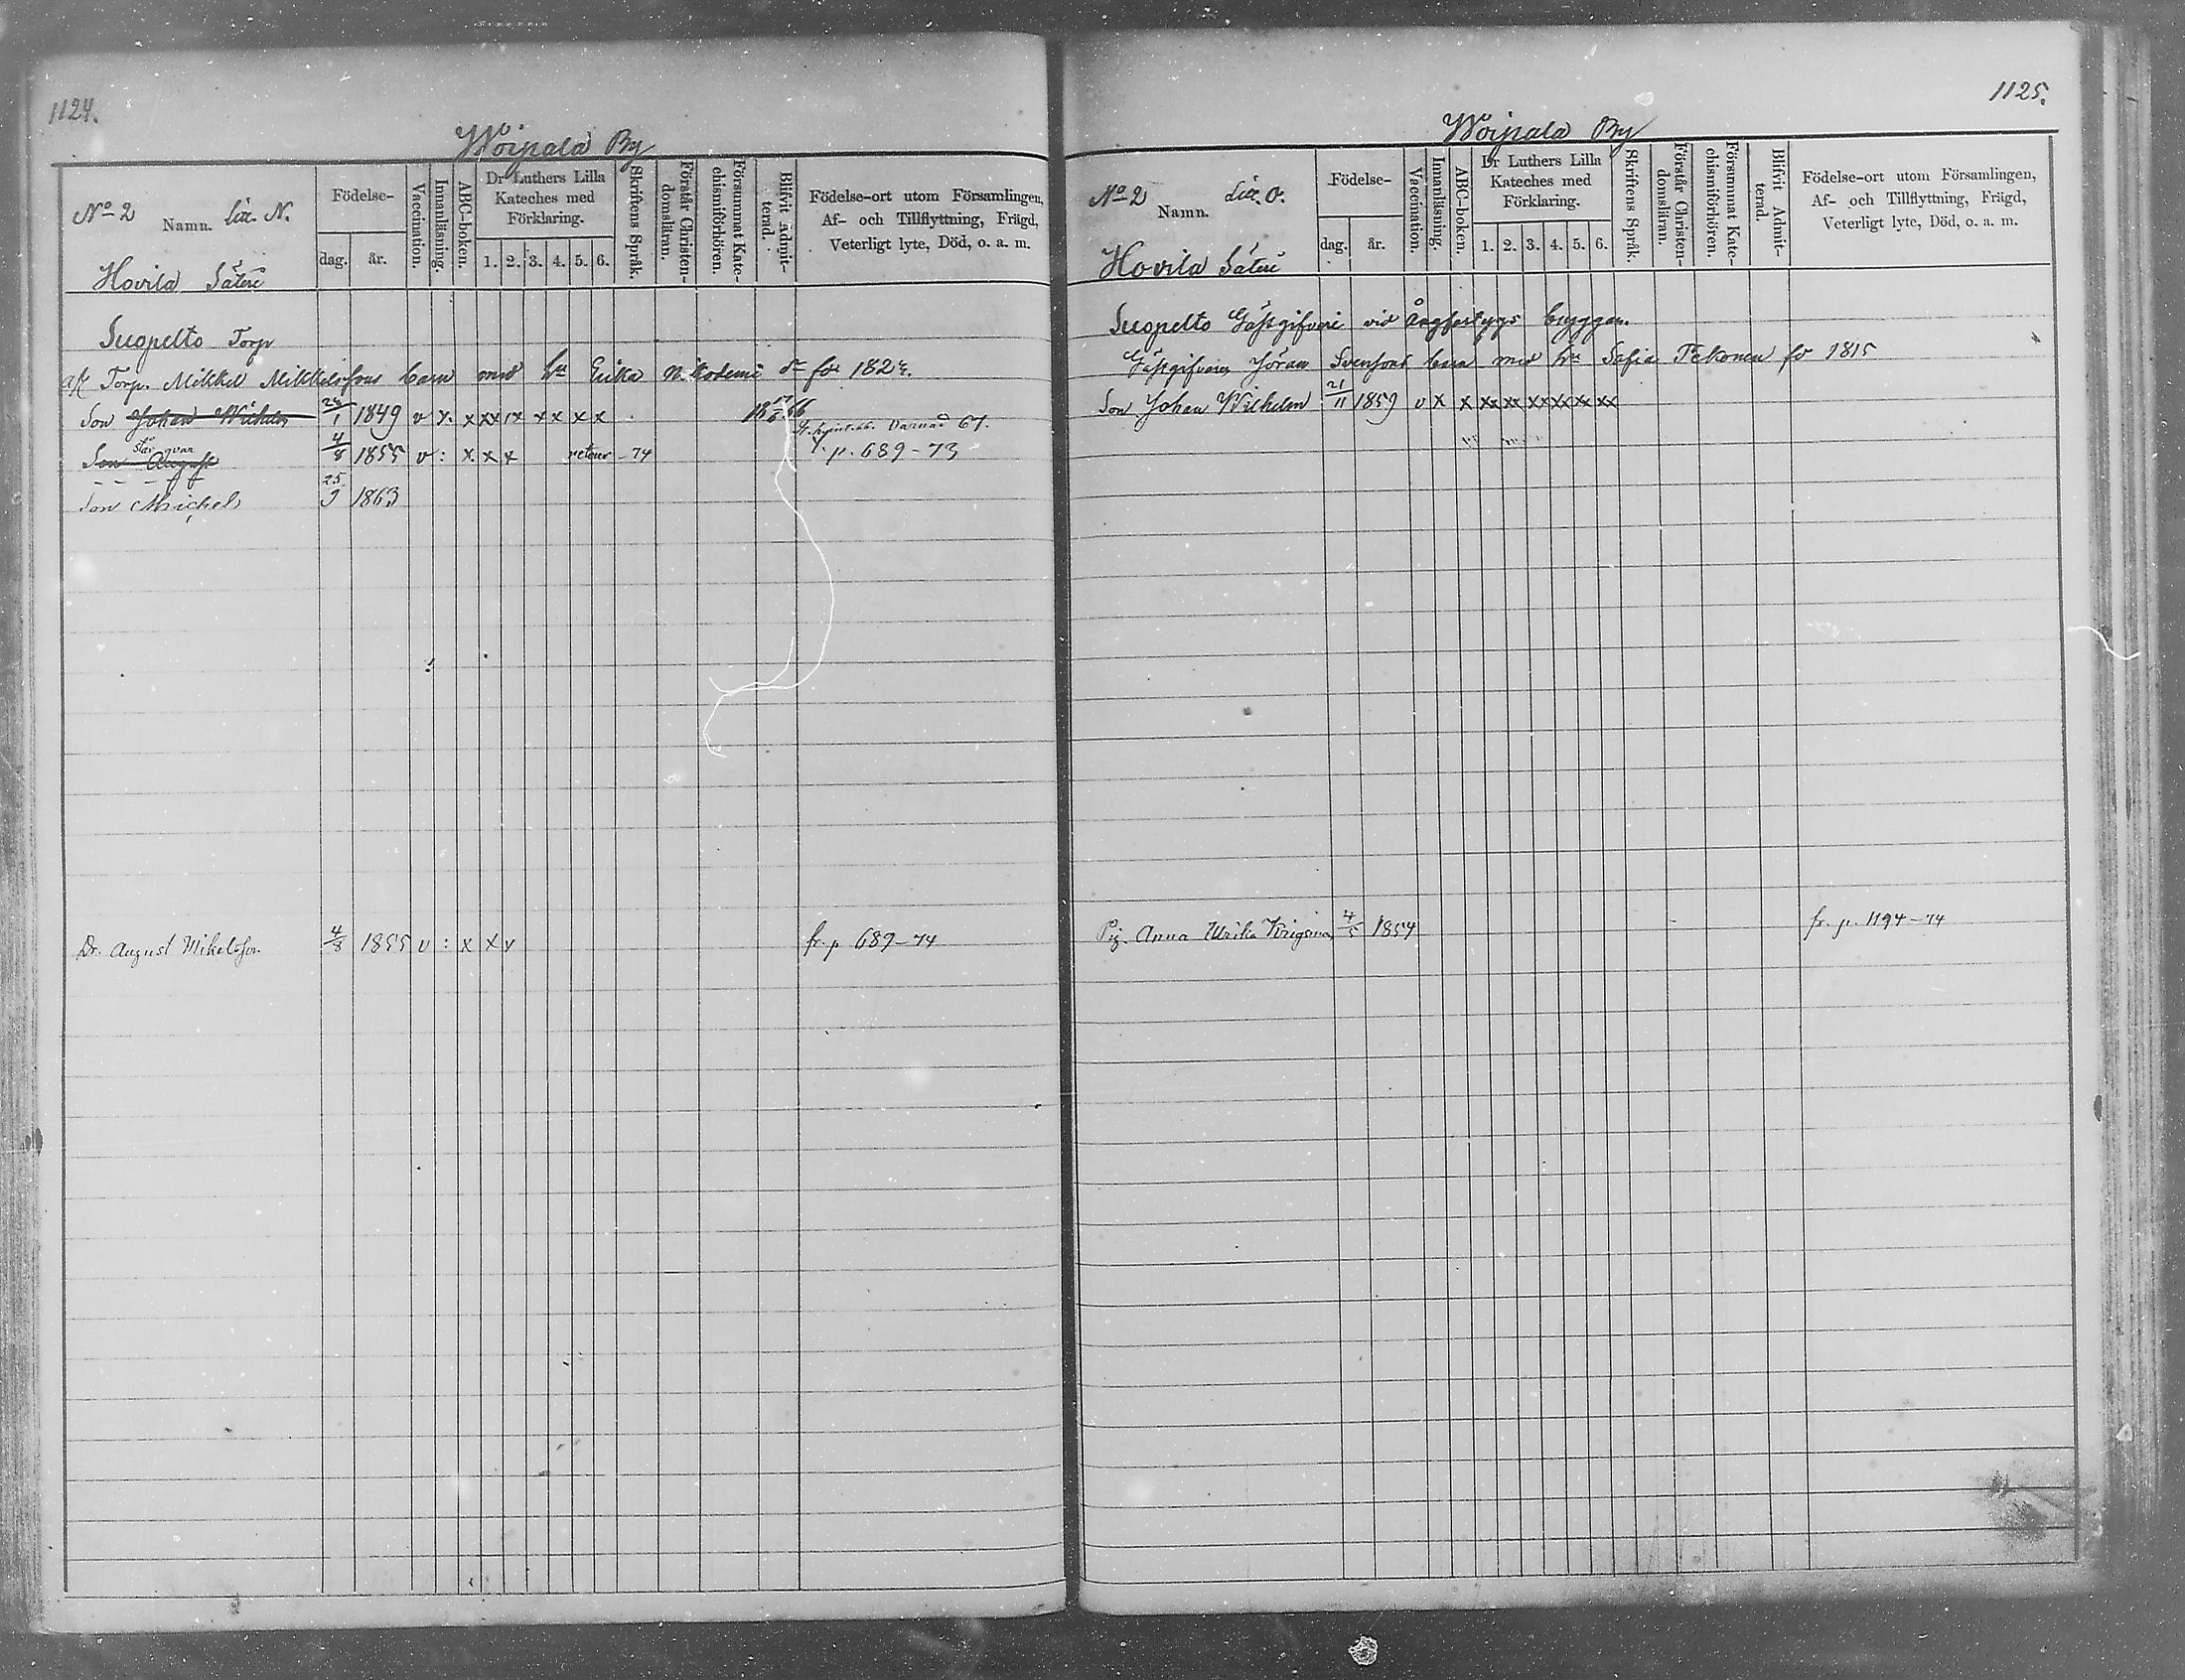 1124.
Woipala By
No 2 Namn. Litt. N.
Hovila Säteri
Födelse-
dag. år.
Vaccination.
Innanläsning.
ABC-boken.
Dr Luthers Lilla Kateches med Förklaring.
1. 2. 3. 4. 5. 6.
Skriftens Språk.
Förstår Christendomsläran.
Försummat Katechismiförhören.
Blifvit Admitterad.
Födelse-ort utom Församlingen, Af- och Tillflyttning, Frägd, Veterligt lyte, Död, o. a. m.
Suopelto Torp
Torp. Mikkel Mikkelssons barn med hu Erika Nikodemi dr för 1824.
Son Johan Wilhelm 1849 v x xxx x x x x 67.
står qvar
Son August 4/8 1855 v : x x x retour -74 p. 689-73
Son Michel 25/9 1863
Dr. August Mikelsson 4/8 1855 v : x x v fr. p 689-74
1125.
Woipala By
No 2 Namn. Litt. O.
Hovila Säteri
Födelse-
dag. år.
Vaccination.
Innanläsning.
ABC-boken.
Dr Luthers Lilla Kateches med Förklaring.
1. 2. 3. 4. 5. 6.
Skriftens Språk.
Förstår Christendomsläran.
Försummat Katechismiförhören.
Blifvit Admitterad.
Födelse-ort utom Församlingen, Af- och Tillflyttning, Frägd, Veterligt lyte, Död, o. a. m.
Suopelto Gästgifveri vid Ångfartygs bryggan.
Gästgifvaren Jöran Svensons barn med hu Sofia Tekonen fö 1815
Son Johan Wilhelm 21/11 1859 v x x xx xx xx xx xx xx
Pig. Anna Ulrika Krigsman 4/5 1854 fr. p. 1194-74